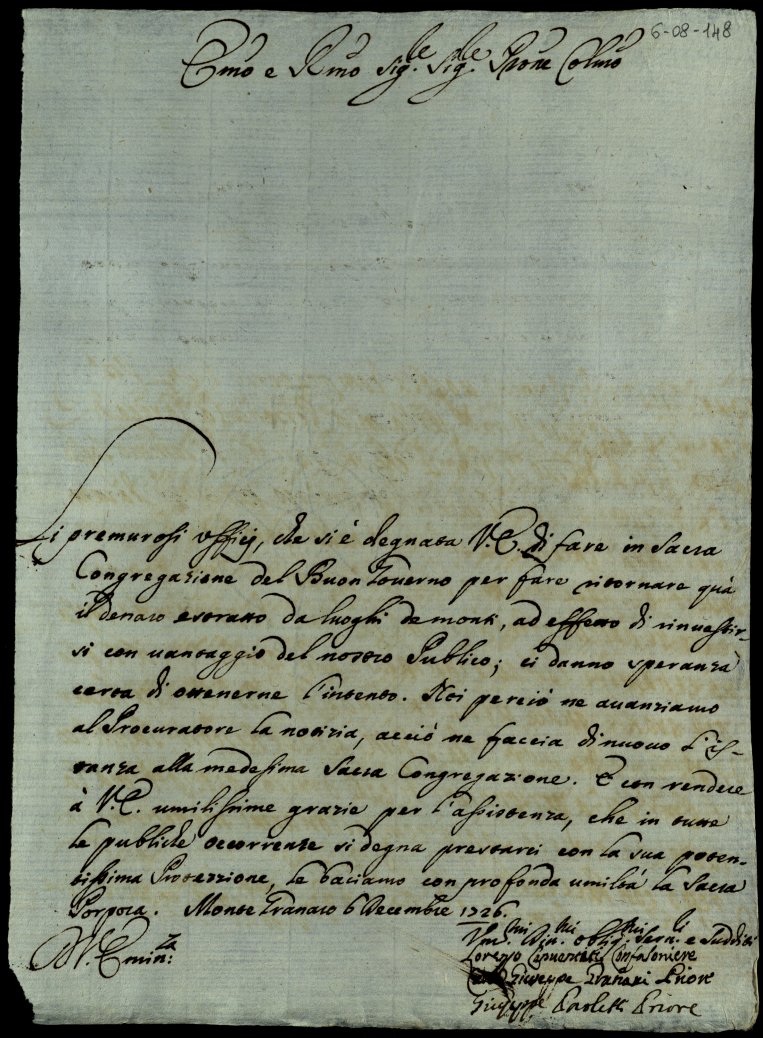 6-08-148
Emo e Rmo Sig.le Sig.le Prone Colmo
Li premurosi officij, che si è degnata V.E. di fare in Sacra
Congregazione del Buon Governo per fare ritornare quà
il denaro estratto da luoghi de monti, ad effetto di rinuestir-
si con uantaggio del nostro Publico; ci danno speranza
certa di ottenerne l'intento. Noi perciò ne auanziamo
al Procuratore la notizia, acciò ne faccia di nuouo l'is-
tanza alla medesima Sacra Congregazione. E con rendere
à V.E. umilissime grazie per l'assistenza, che in tutte
le publiche occorrenze si degna prestarci con la sua poten-
tissima Protezzione, le baciamo con profonda umiltà la Sacra
Porpora. Monte Granaro 6 Decembre 1726.
Vm.mi Diu.mi oblig.mi Seru.li e Sudditi
D.V. Emin:za
Lorenzo Confaloniere
Giuseppe Granari Priore
Giuseppe Paoletti Priore